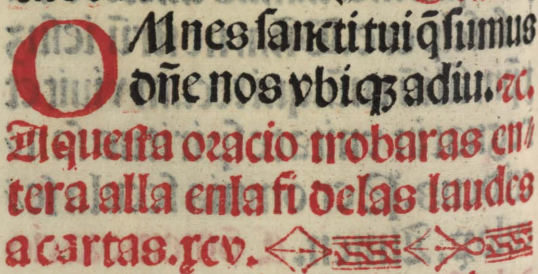 OMnes sancti tui q̃sumus
dñe nos vbiqꝫ adiu. ⁊c.
Aquesta oracio trobaras en⸗
tera alla enla fi delas laudes
a cartas.xcv.